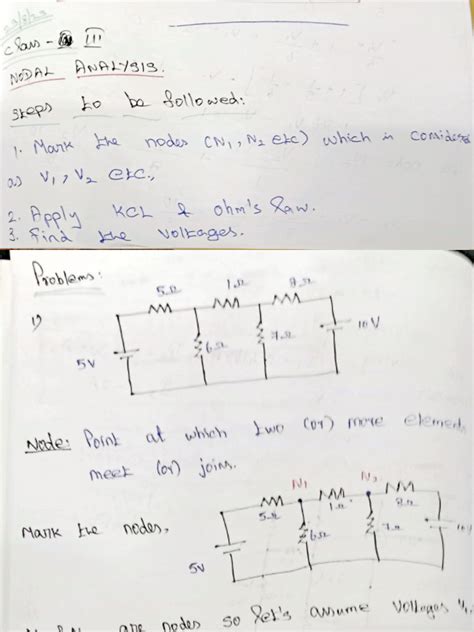 Class - III
NODAL ANALYSIS.
Steps to be followed:
1. Mark the nodes (N1, N2 etc) which is considered
as V1, V2 etc.,
2. Apply KCL & ohm's Law.
3. Find the voltages.
Problems:
1)
5Ω 1Ω
6Ω
10V
5V
Node: Point at which two (or) more elements
meet (or) joins.
Mark the nodes.
N1 N2
5Ω 1Ω
6Ω
5V
are nodes so let's assume voltages